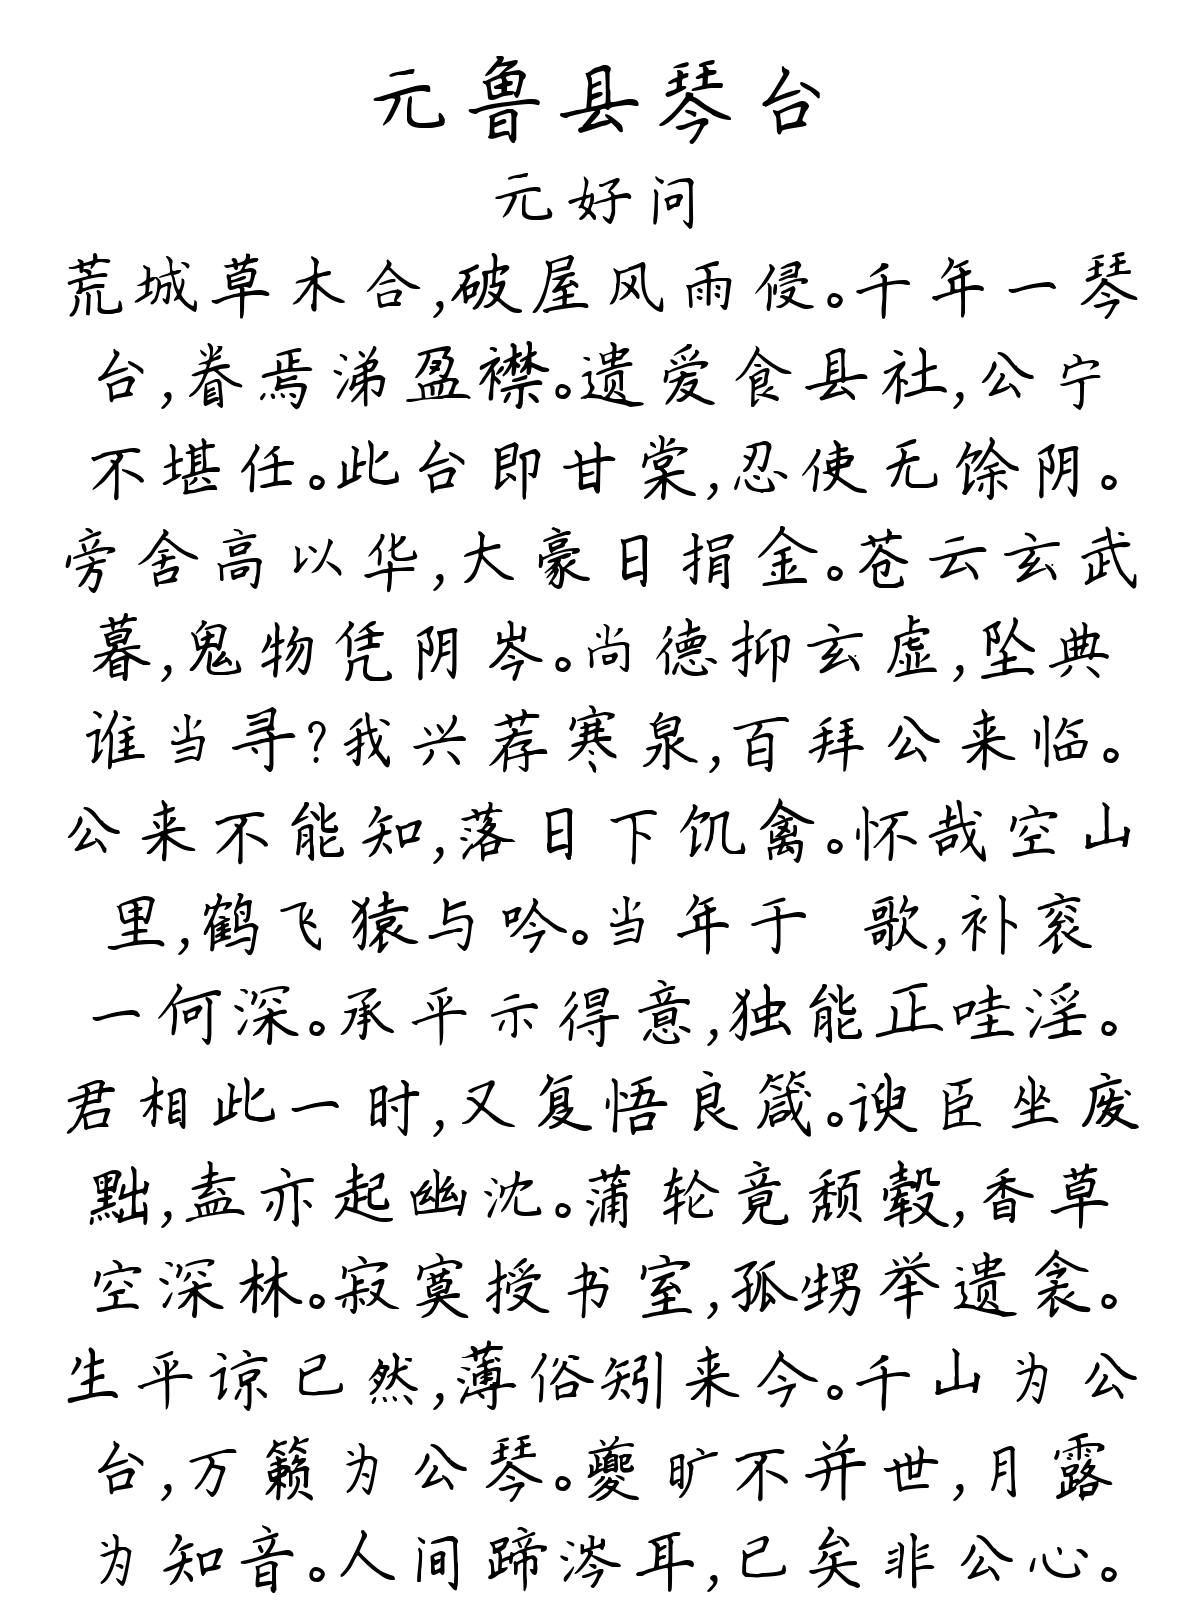 元鲁县琴台
元好问
荒城草木合,破屋风雨侵。千年一琴
台,眷焉涕盈襟。遗爱食县社,公宁
不堪任。此台即甘棠,忍使无馀阴。
旁舍高以华,大豪日捐金。苍云玄武
暮,鬼物凭阴岑。尚德抑玄虚,坠典
谁当寻?我兴荐寒泉,百拜公来临。
公来不能知,落日下饥禽。怀哉空山
里,鹤飞猿与吟。当年于 歌,补衮
一何深。承平示得意,独能正哇淫。
君相此一时,又复悟良箴。谀臣坐废
黜,盍亦起幽沈。蒲轮竟颓毂,香草
空深林。寂寞授书室,孤甥举遗衾。
生平谅已然,薄俗矧来今。千山为公
台,万籁为公琴。夔旷不并世,月露
为知音。人间蹄涔耳,已矣非公心。